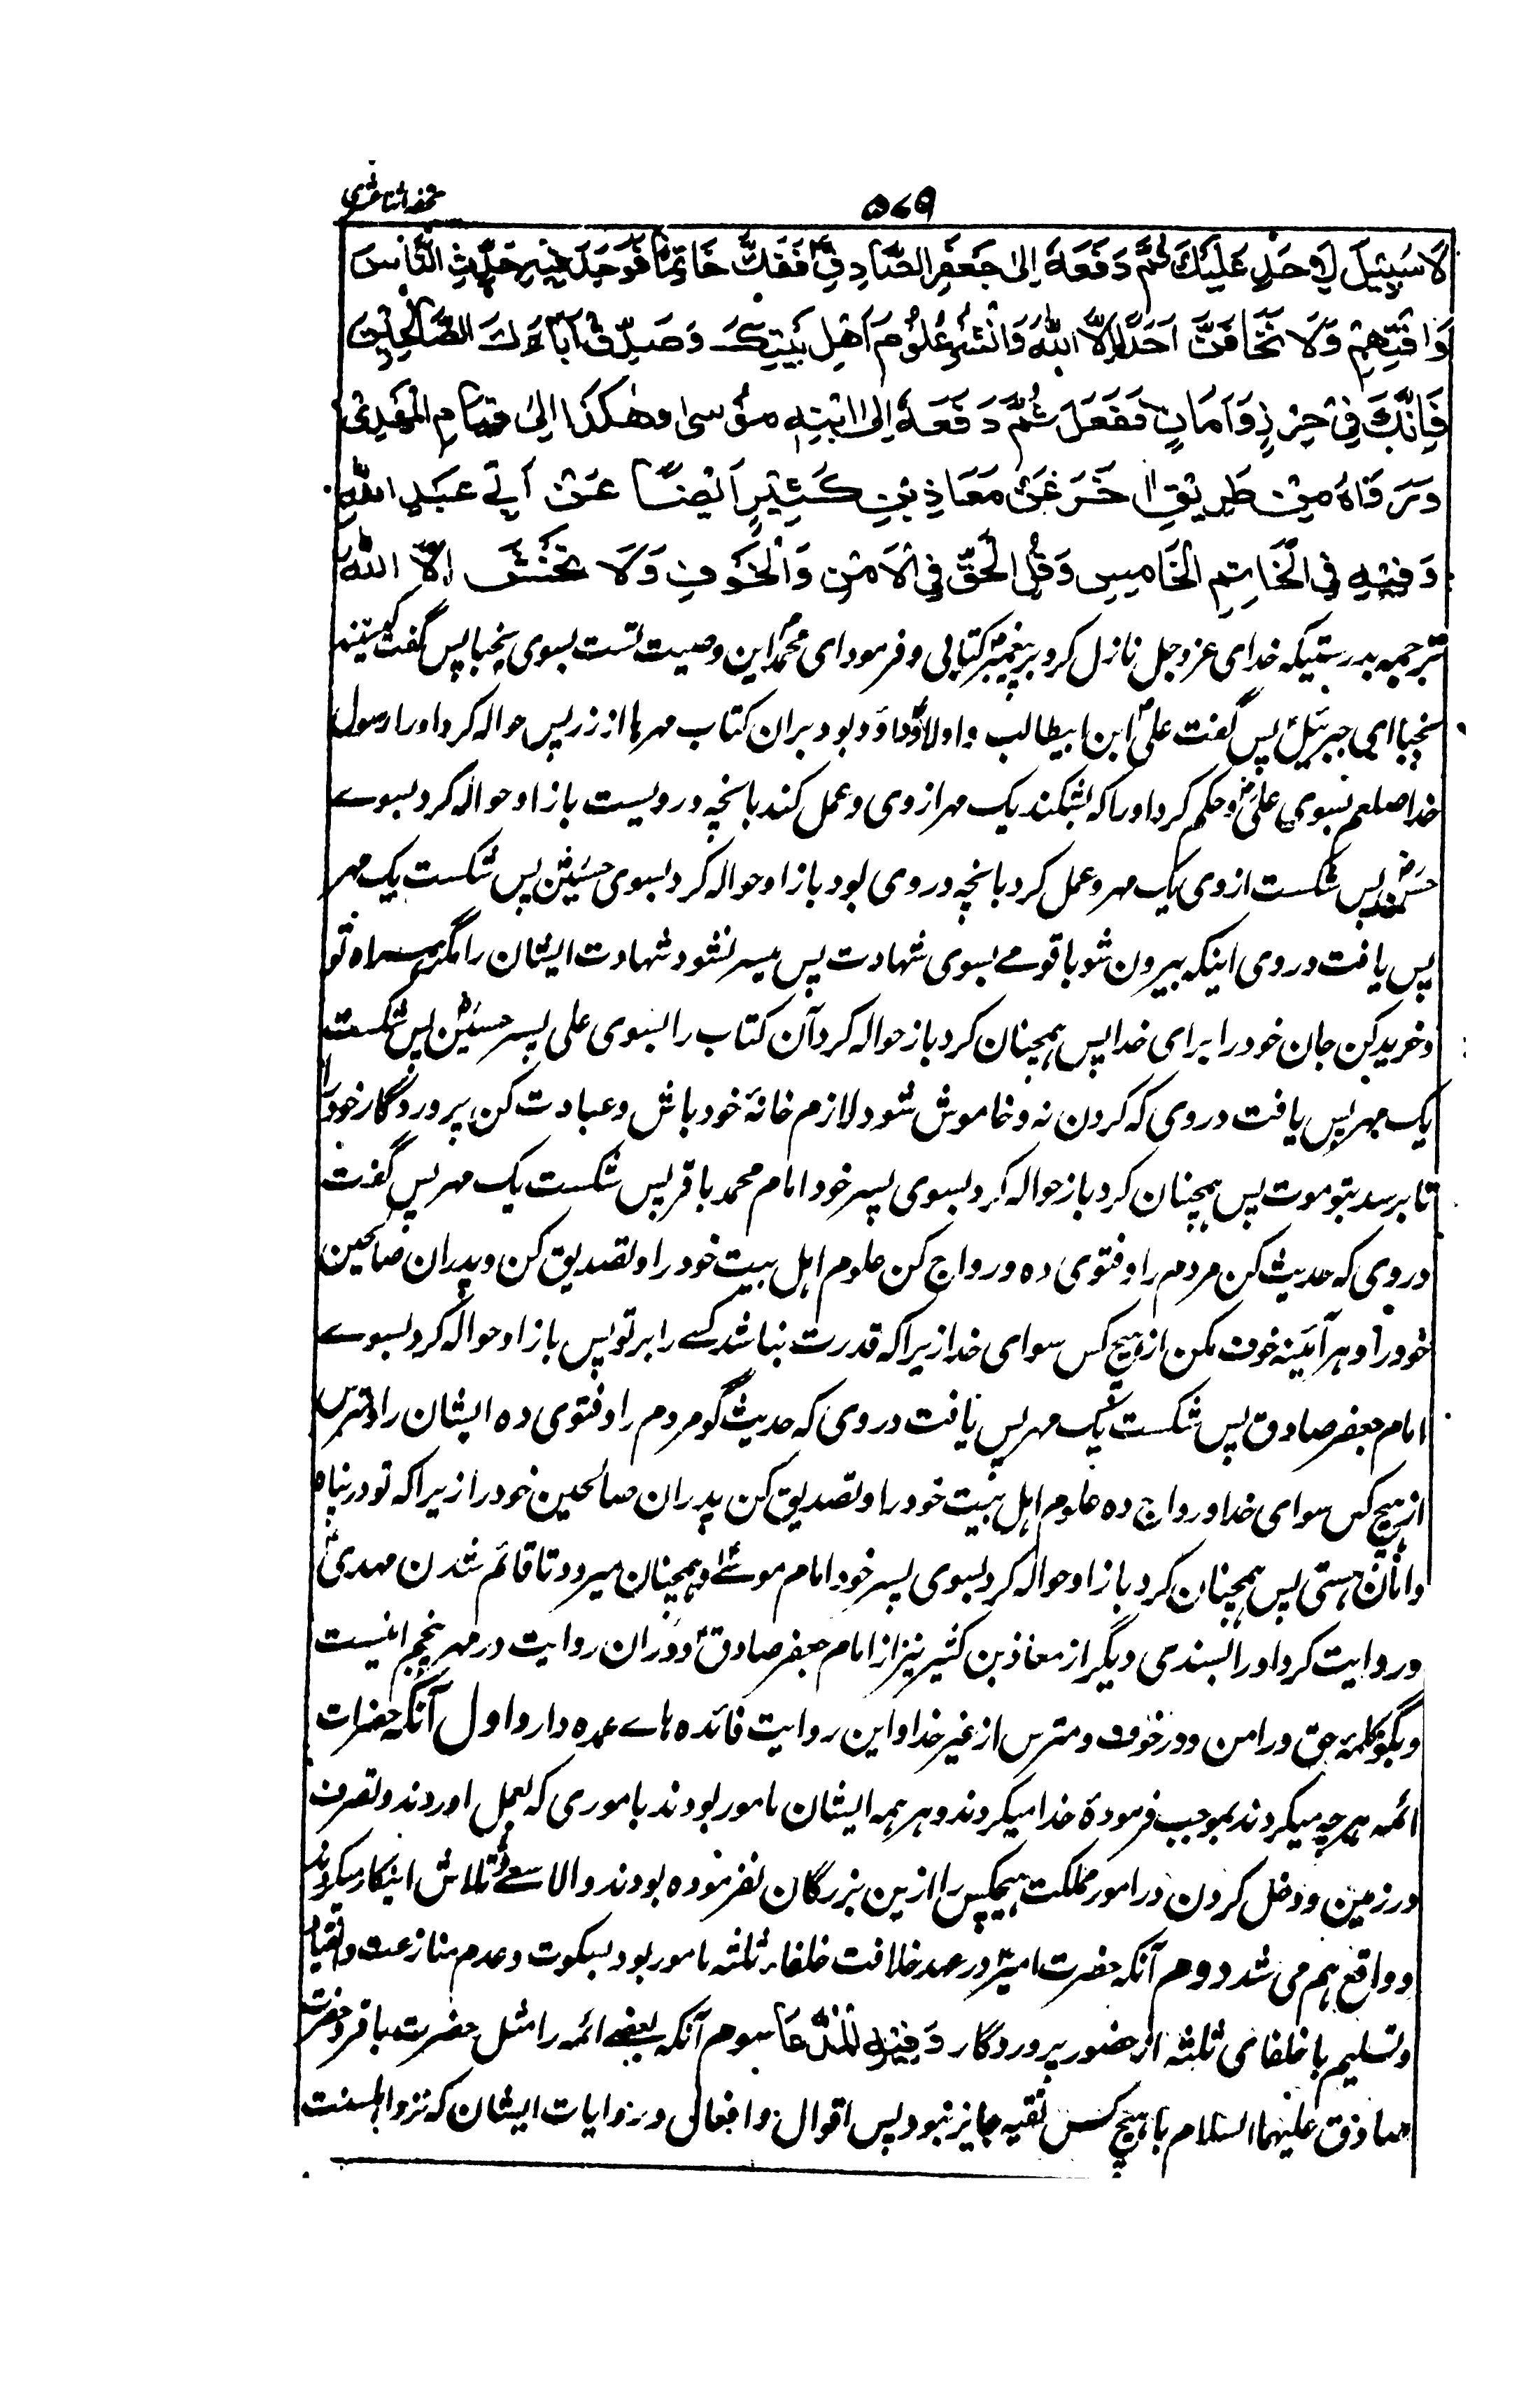 تحفه اثنا عشری
۵۷۹
لَا سَبِيْلَ لِاَحَدٍ عَلَيْكَ ثُمَّ دَفَعَهٗ اِلٰى جَعْفَرِ الصَّادِقِ فَفَكَّ خَاتِمًا فَوَجَدَ فِيْهِ حَدِّثِ النَّاسَ
وَاَفْتِهِمْ وَلَا تَخَافَنَّ اَحَدًا اِلَّا اللّٰهَ وَانْشُرْ عُلُوْمَ اَهْلِ بَيْتِكَ وَصَدِّقْ اٰبَاءَكَ الصَّالِحِيْنَ
فَاِنَّكَ فِيْ حِرْزٍ وَاَمَانٍ فَفَعَلَ ثُمَّ دَفَعَهٗ اِلٰى ابْنِهٖ مُوْسٰى وهٰكَذَا اِلٰى قِيَامِ الْمَهْدِيِّ
وَرَوَاهُ مِنْ طَرِيْقٍ اٰخَرَ عَنْ مَعَاذِ بْنِ كَثِيْرٍ اَيْضًا عَنْ اَبِيْ عَبْدِ اللّٰهِ
وَفِيْهِ فِي الْخَاتِمِ الْخَامِسِ وَقُلِ الْحَقَّ فِي الْاَمْنِ وَالْخَوْفِ وَلَا تَخْشَ اِلَّا اللّٰهَ
ترجمه بدرستیکه خدای عزوجل نازل کرد بر پیغمبر کتابی و فرمود ای محمد این وصیت تست بسوی نجبا پس گفت کیستند
نجبا ای جبرئیل پس گفت علی ابن ابیطالب و اولاد او و بود بران کتاب مهرها از زر پس حواله کرد اورا رسول
خدا صلعم بسوی علی و حکم کرد اورا که بشکند یک مهر از وی و عمل کند بانچه در ویست باز او حواله کرد بسوے
حسن پس شکست از وی یک مهر و عمل کرد بانچه در وی بود باز او حواله کرد بسوی حسین پس شکست یک مهر
پس یافت در وی اینکه بیرون شو با قومے بسوی شهادت پس میسر نشود شهادت ایشان را مگر همراه تو
و خرید کن جان خود را برای خدا پس همچنان کرد باز حواله کرد آن کتاب را بسوی علی پسر حسین پس شکست
یک مهر پس یافت در وی که گردن نه و خاموش شو و لازم خانهٔ خود باش و عبادت کن پروردگار خود را
تا برسد بتو موت پس همچنان کرد باز حواله کرد بسوی پسر خود امام محمد باقر پس شکست یک مهر پس گفت
در وی که حدیث کن مردم را و فتوی ده و رواج کن علوم اهل بیت خود را و تصدیق کن و پدران صالحین
خود را و هر آئینه خوف مکن از هیچ کس سوای خدا زیرا که قدرت نباشد کسے را بر تو پس باز او حواله کرد بسوے
امام جعفر صادق پس شکست یک مهر پس یافت در وی که حدیث گو مردم را و فتوی ده ایشان را و مترس
از هیچ کس سوای خدا و رواج ده علوم اهل بیت خود را و تصدیق کن پدران صالحین خود را زیرا که تو در پناه
و امان هستی پس همچنان کرد باز او حواله کرد بسوی پسر خود امام موسے و همچنان میرود تا قائم شدن مهدی
و روایت کرد اورا بسندی دیگر از معاذ بن کثیر نیز از امام جعفر صادق و دران روایت در مهر پنجم اینست
و بگو کلمهٔ حق در امن و در خوف و مترس از غیر خدا و این روایت فائده هاے عمده دارد اول آنکه حضرات
ائمه هر چه میکردند بموجب فرمودهٔ خدا میکردند و هر همه ایشان مامور بودند باموری که بعمل اوردند و تصرف
در زمین و دخل کردن در امور مملکت هیچکس را ازین بزرگان نفرموده بودند والا سعی و تلاش اینکار میکردند
و واقع هم می شد دوم آنکه حضرت امیر در عهد خلافت خلفاء ثلثه مامور بود بسکوت و عدم منازعت و انقیاد
و تسلیم با خلفای ثلثه از حضور پروردگار وَفِيْهِ الْمُدَّعَا سوم آنکه بعضے ائمه را مثل حضرت باقر و حضرت
صادق علیهما السلام با هیچ کس تقیه جایز نبود پس اقوال و افعال و روایات ایشان که نزد اهلسنت